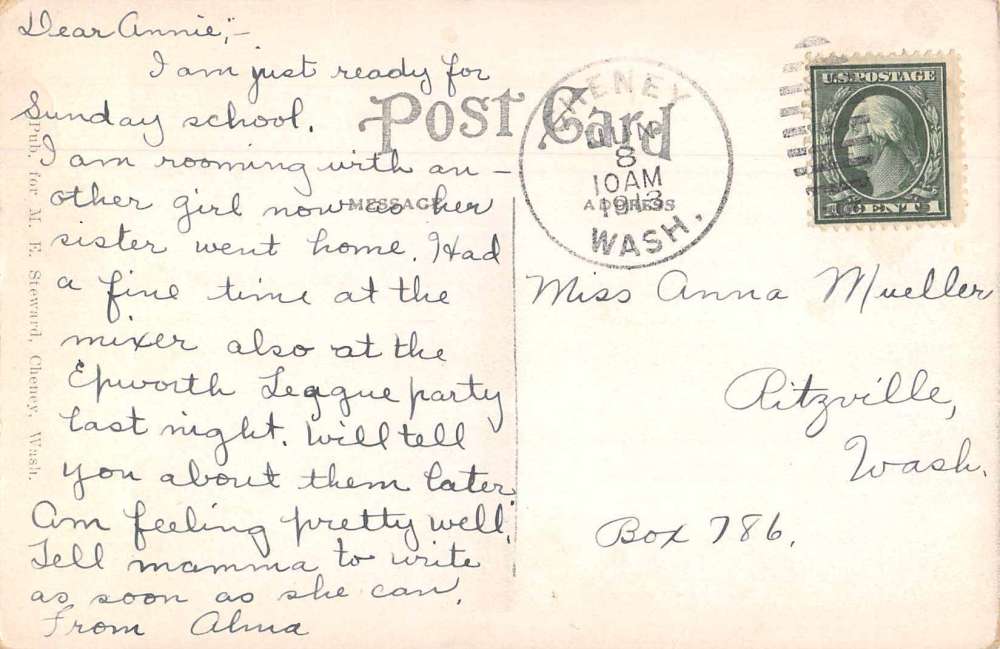 Dear Annie;-
I am just ready for
Sunday school.
I am rooming with an-
other girl now as her
sister went home. Had
a fine time at the
mixer also at the
Epworth League party
last night. Will tell
you about them later.
Am feeling pretty well.
Tell mamma to write
as soon as she can.
From Alma
Pub. for M. E. Steward, Cheney, Wash.
POST Card
MESSAGE
ADDRESS
CHENEY
JUN
8
10 AM
1913
WASH.
U.S. POSTAGE
1 CENT 1
Miss Anna Mueller
Ritzville,
Wash.
Box 786.